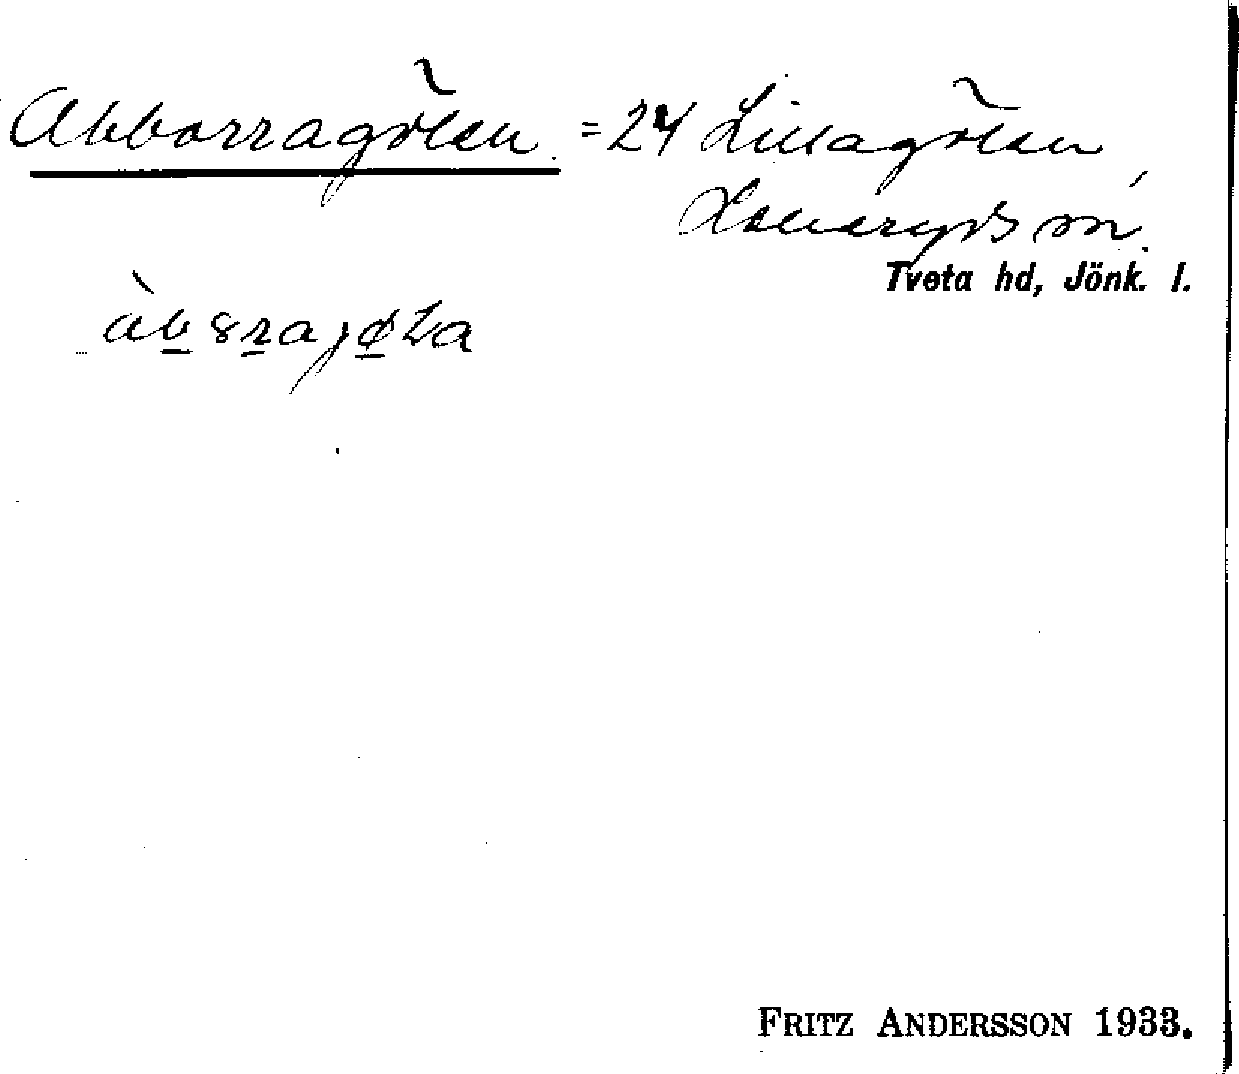 Abborragölen. = 24 Lillagölen
Lommaryds sn.
Tveta hd, Jönk. l.
FRITZ ANDERSSON 1933.